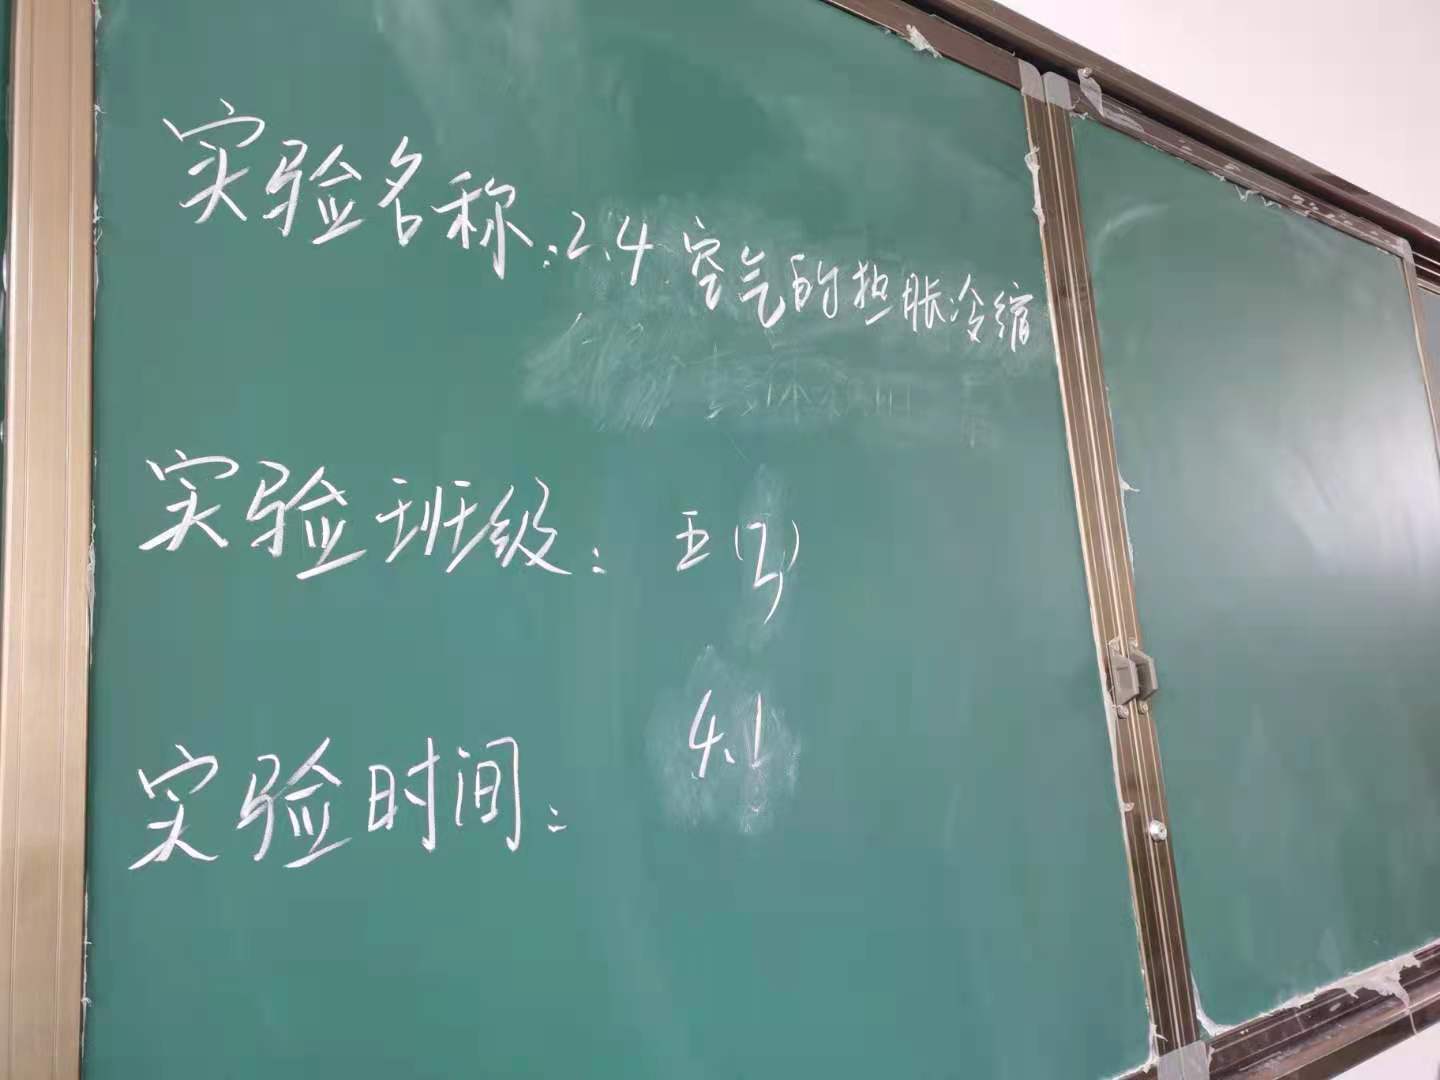 实验名称:2.4 空气的热胀冷缩
实验班级: 五(2)
实验时间: 4.1